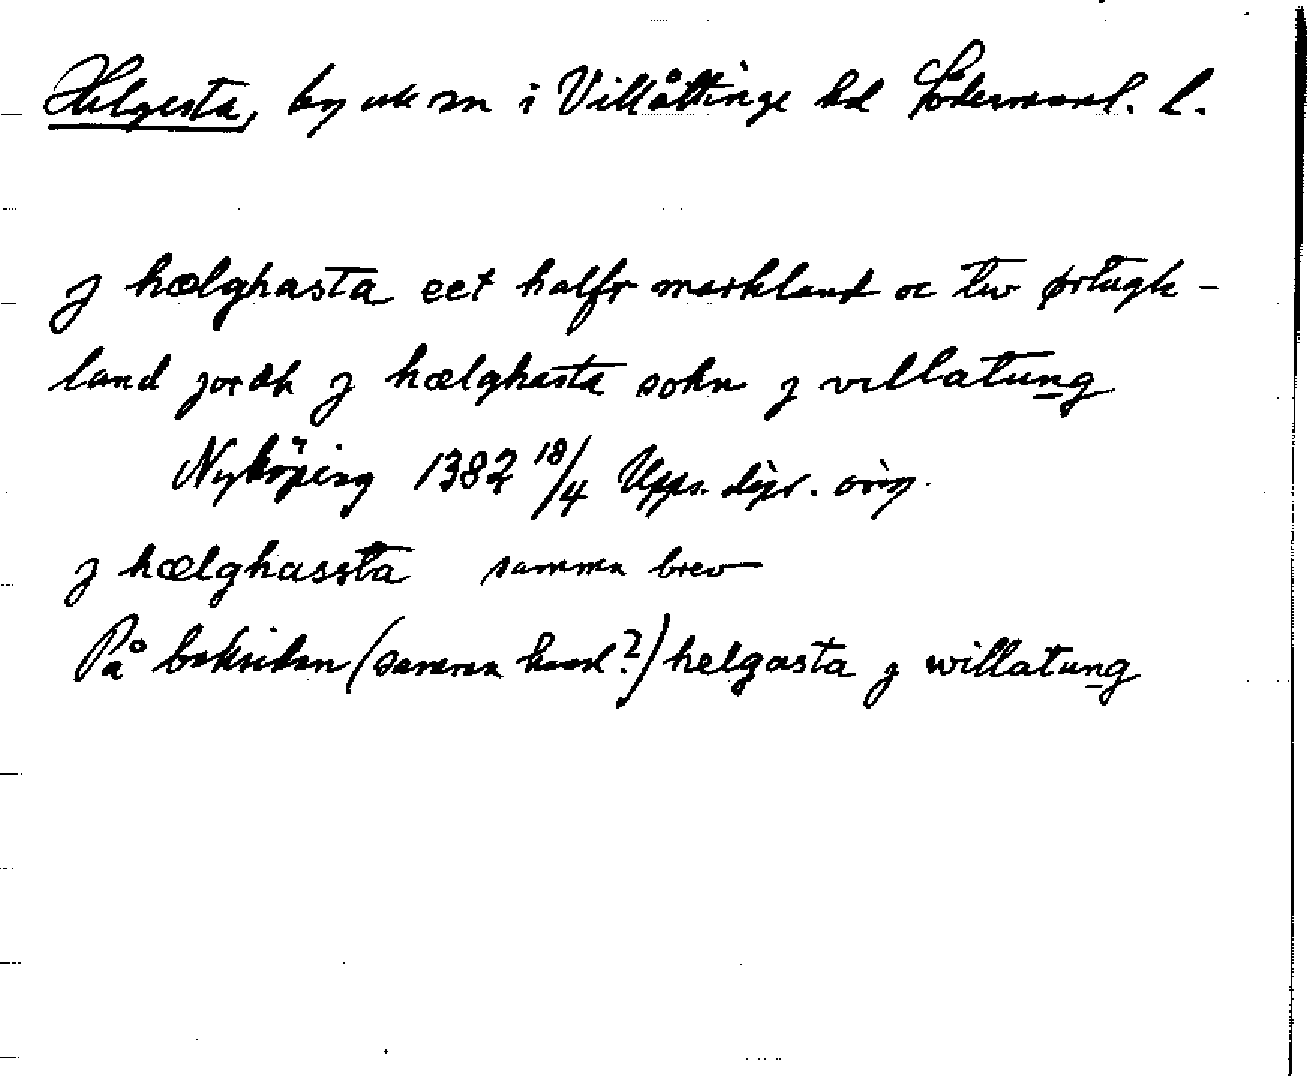 Helgesta, by ock sn i Villåttinge hd Södermanl. l.
j hælghasta eet halfft markland oc tw ørtugh-
land jordh j hælghasta sokn j villatung
Nyköping 1382 18/4 Upps. dipl. orig.
j hælghassta samma brev
På baksidan (samma hand?) helgasta j willatung